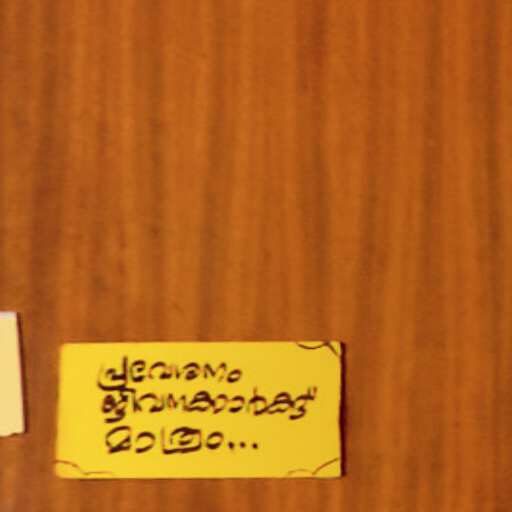 പ്രവേശനം
ജീവനക്കാർക്ക്
മാത്രം...